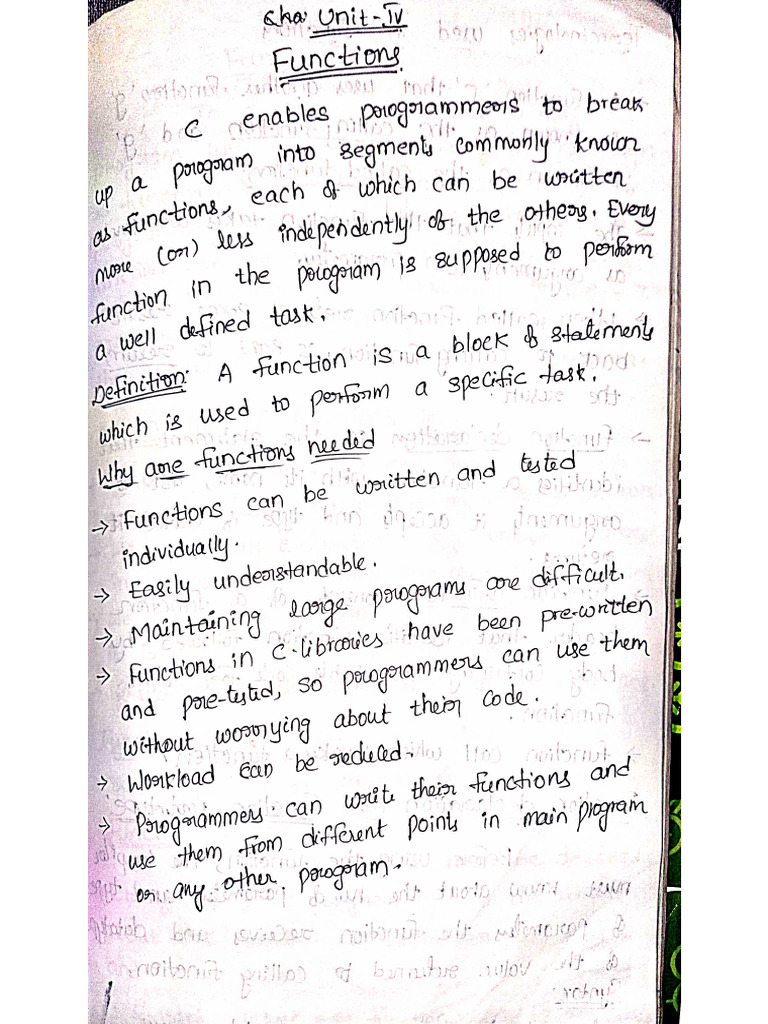 Unit-IV
Functions
C enables programmers to break
up a program into segments commonly known
as functions, each of which can be written
more (or) less independently of the others. Every
function in the program is supposed to perform
a well defined task.
Definition: A function is a block of statements
which is used to perform a specific task.
Why are functions needed
→ Functions can be written and tested
individually.
→ Easily understandable.
→ Maintaining large programs are difficult.
→ Functions in C-libraries have been pre-written
and pre-tested, so programmers can use them
without worrying about their code.
→ Workload can be reduced.
→ Programmers can write their functions and
use them from different points in main program
or any other program.